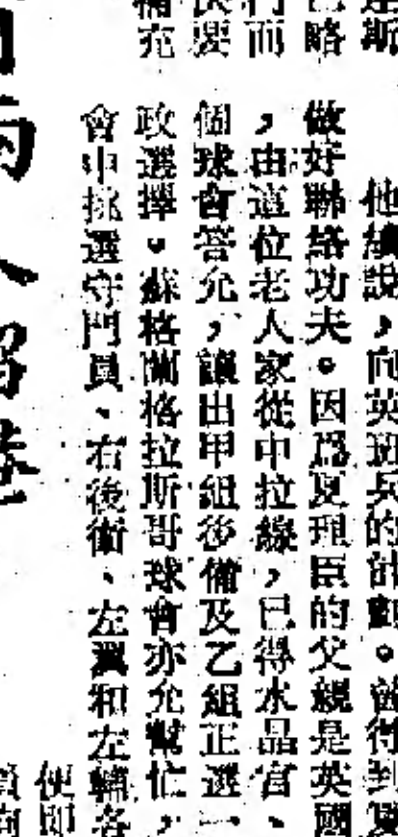 達斯
已略
們而
快要
補充
他續說，向英班兵的計劃。曾得到夏
做好聯絡功夫。因爲夏理臣的父親是英國
，由這位老人家從中拉線，已得水晶宮、
個球會答允，讓出甲組後備及乙組正選一、
政選擇。蘇格蘭格拉斯哥球會亦允幫忙，
會中挑選守門員、右後衛、左翼和左輔各
便即